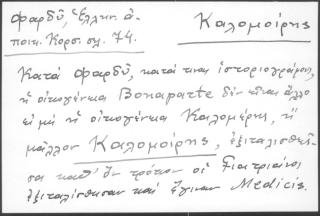 Φαρδῦ, Ἑλλην. ἀ-
ποικ. Κορσ. σελ. 74.
Καλομοίρης
Κατὰ Φαρδῦ, κατά τινας ἱστοριογράφους,
ἡ οἰκογένεια Bonaparte δὲν εἶναι ἄλλο
εἰ μὴ ἡ οἰκογένεια Καλομέρη, ἢ
μᾶλλον Καλομοίρης, ἐξιταλισθεῖ-
σα καθ' ὃν τρόπον οἱ Γιατριάνοι
ἐξιταλίσθησαν καὶ ἔγιναν Medicis.